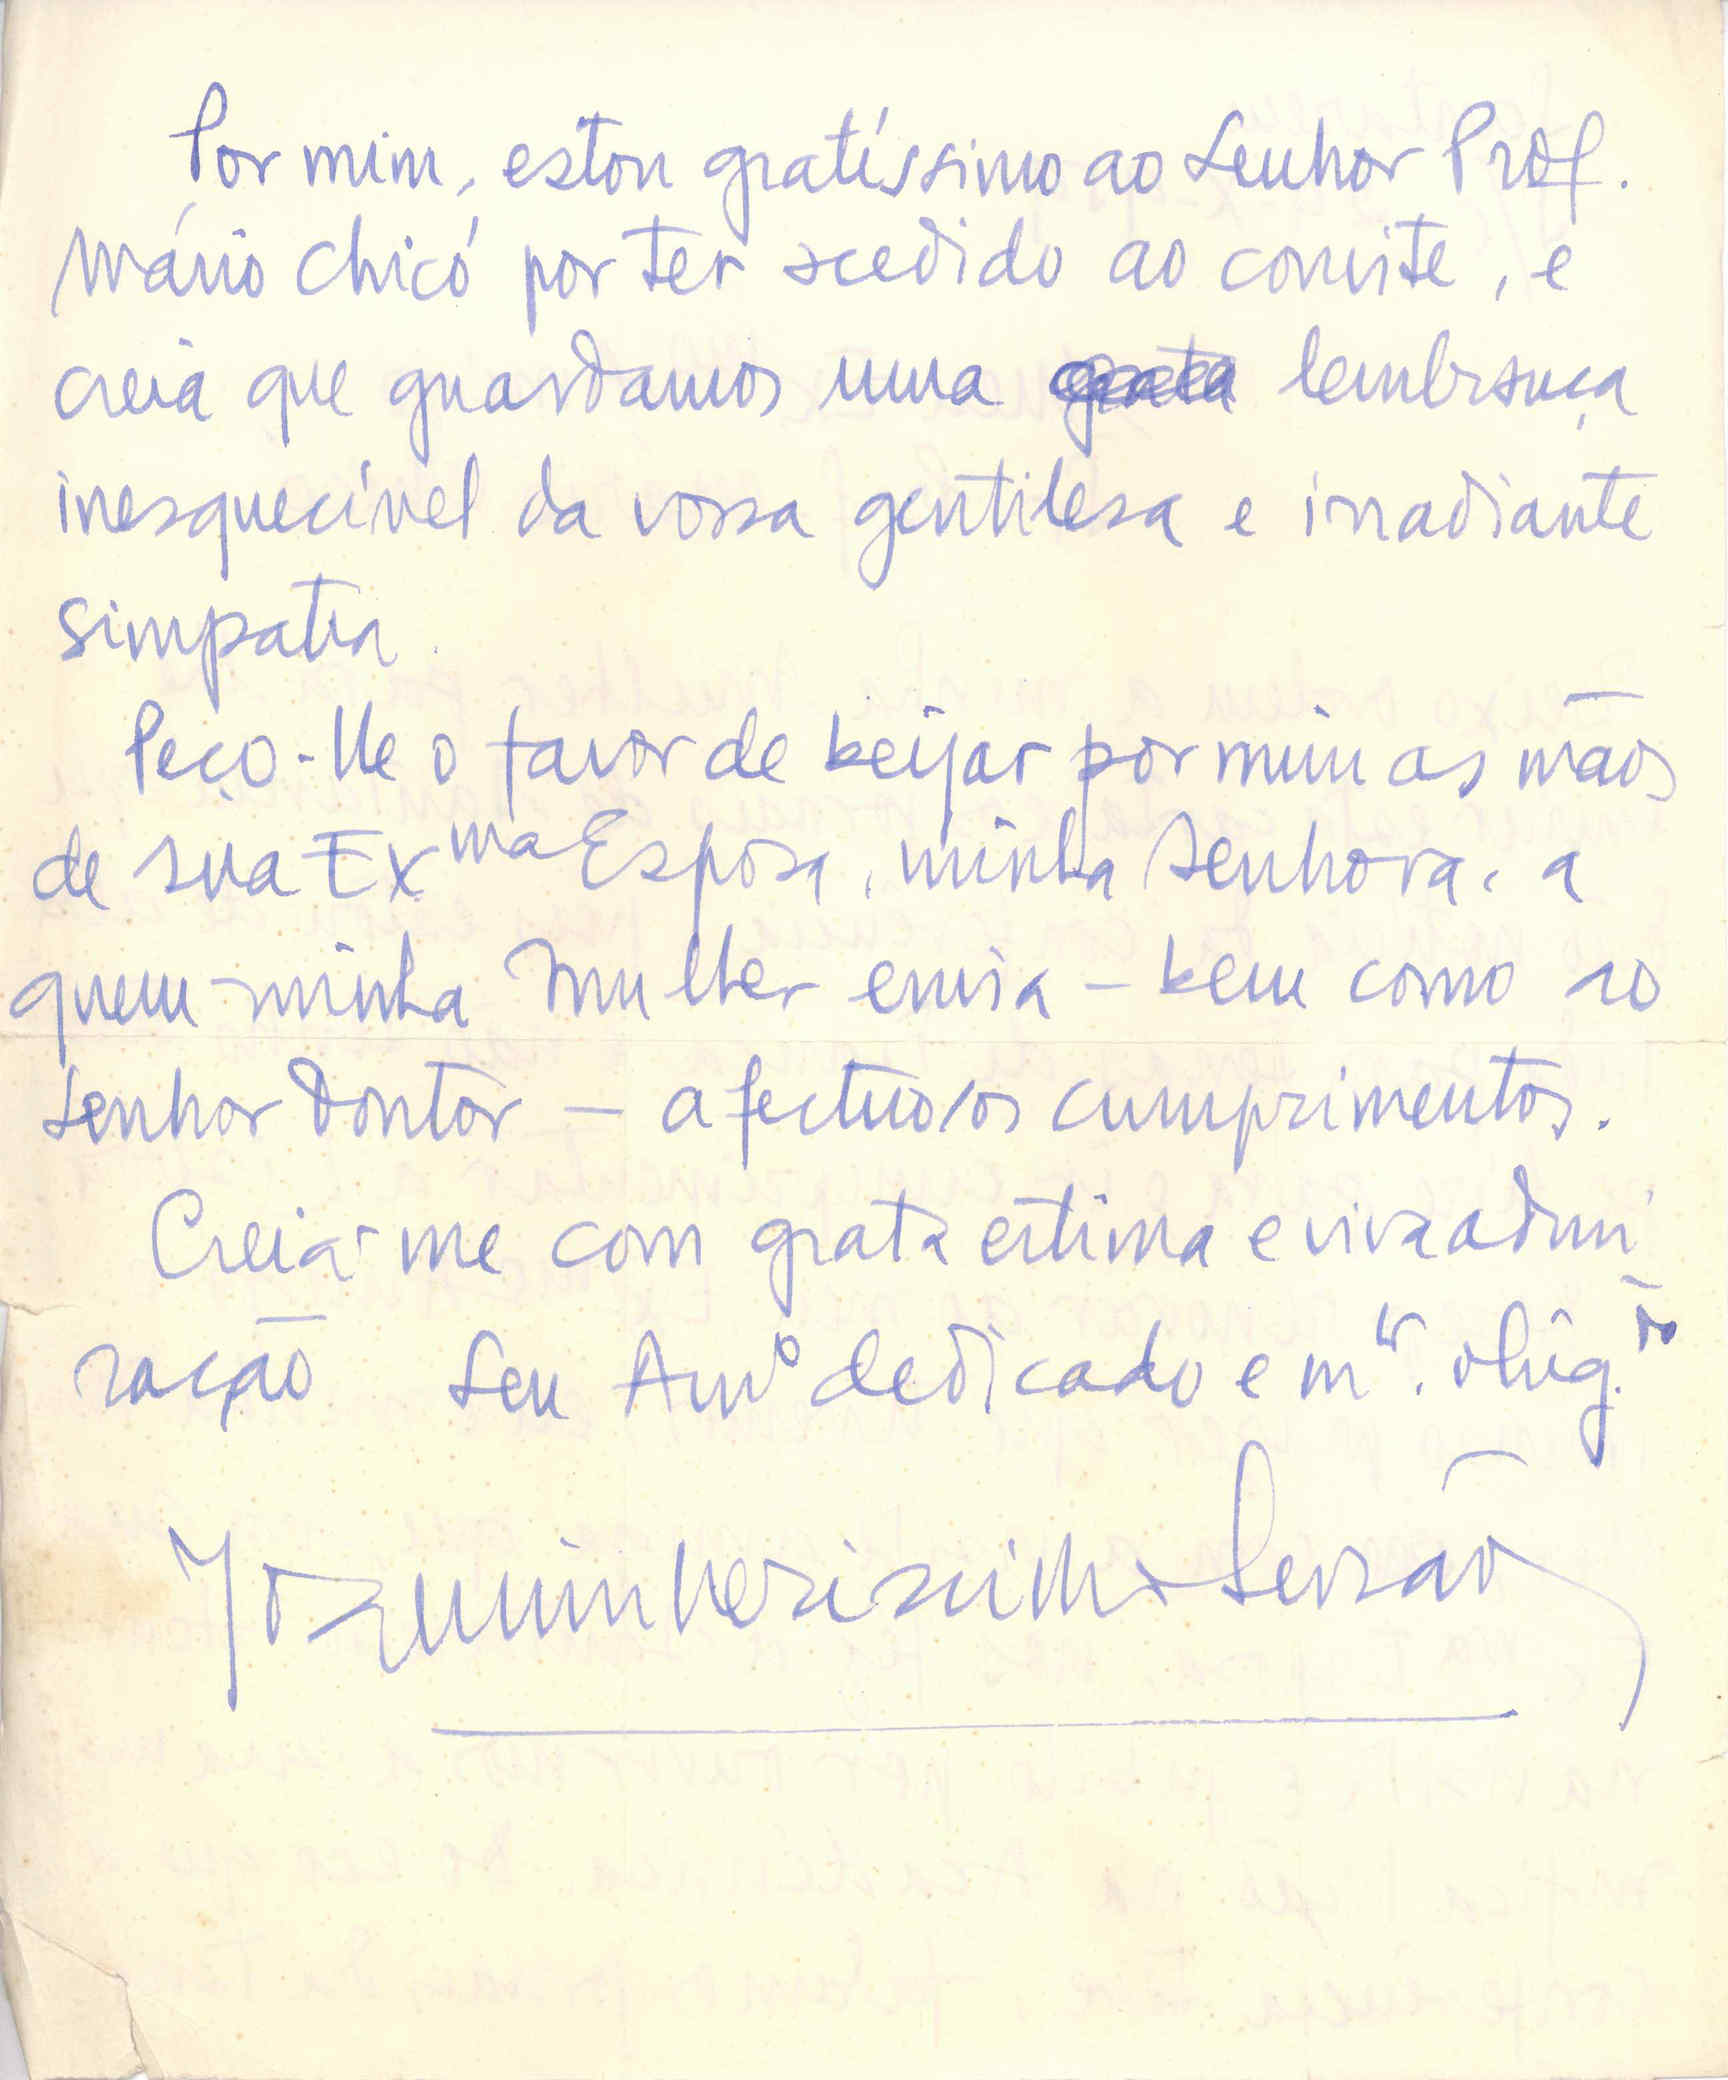 Por mim, estou gratíssimo ao Senhor Prof.
Mário Chicó por ter acedido ao convite, e
creia que guardamos uma grata lembrança
inesquecível da vossa gentilesa e irradiante
simpatia.
Peço-lhe o favor de beijar por mim as mãos
de sua Exma Esposa, minha Senhora, a
quem minha Mulher envia – bem como ao
Senhor Doutor – afectuosos cumprimentos.
Creia-me com grata estima e viva admi
ração Seu Amº dedicado e mtº. obrig.do
Joaquim Veríssimo Serrão